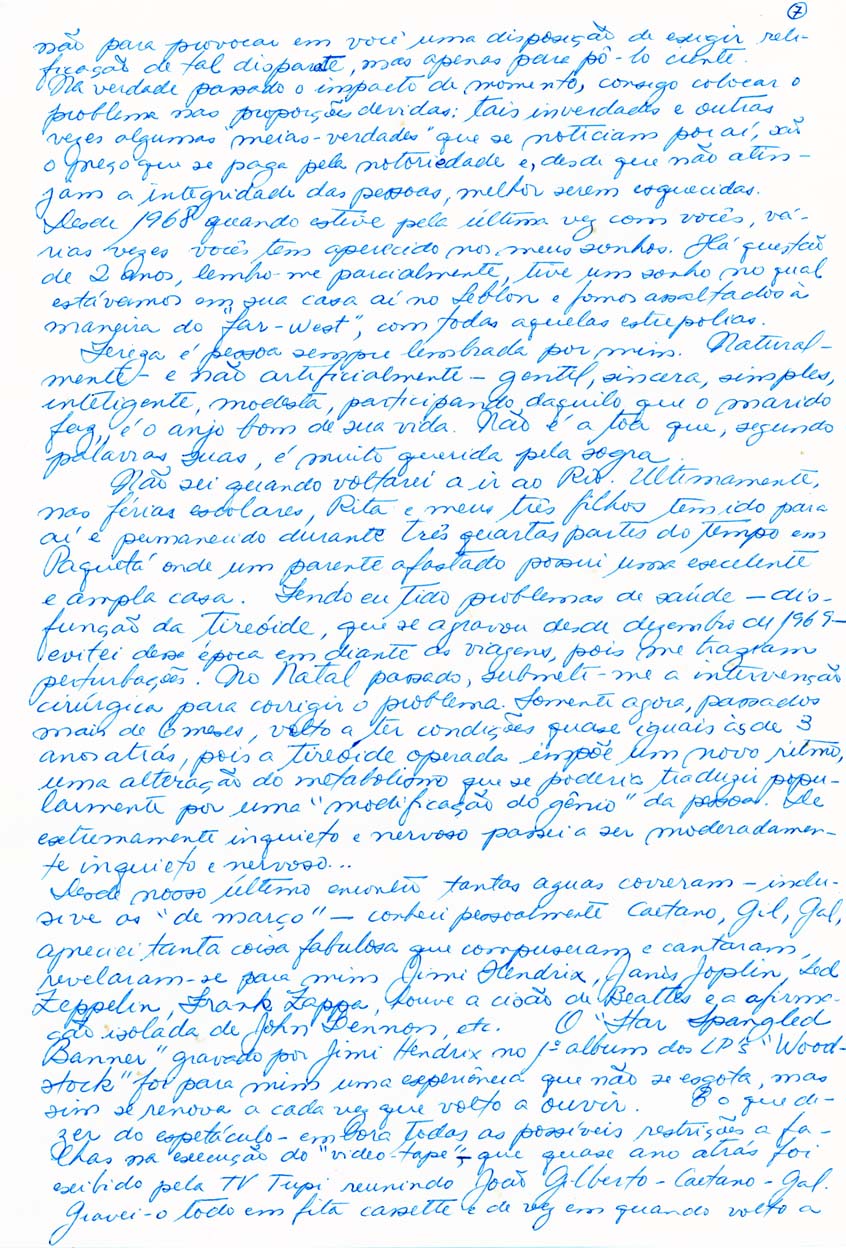 7
não para provocar em você uma disposição de exigir reti-
ficação de tal disparate, mas apenas para pô-lo ciente.
Na verdade passado o impacto do momento, consigo colocar o
problema nas proporções devidas: tais inverdades e outras
vezes algumas "meias-verdades" que se noticiam por aí, são
o preço que se paga pela notoriedade e, desde que não atin-
jam a integridade das pessoas, melhor serem esquecidas.
Desde 1968 quando estive pela última vez com vocês, vá-
rias vezes vocês tem aparecido nos meus sonhos. Há questão
de 2 anos, lembro-me parcialmente, tive um sonho no qual
estávamos em sua casa aí no Leblon e fomos assaltados à
maneira do "far-west", com todas aquelas estrepolias.
Tereza é pessoa sempre lembrada por mim. Natural-
mente - e não artificialmente - gentil, sincera, simples,
inteligente, modesta, participando daquilo que o marido
faz, é o anjo bom de sua vida. Não é a toa que, segundo
palavras suas, é muito querida pela sogra.
Não sei quando voltarei a ir ao Rio. Ultimamente,
nas férias escolares, Rita e meus três filhos tem ido para
aí e permanecido durante três quartas partes do tempo em
Paquetá onde um parente afastado possui uma excelente
e ampla casa. Tendo eu tido problemas de saúde - dis-
função da tireóide, que se agravou desde dezembro de 1969 -
evitei dessa época em diante as viagens, pois me traziam
perturbações. No Natal passado, submeti-me a intervenção
cirúrgica para corrigir o problema. Somente agora, passados
mais de 6 meses, volto a ter condições quase iguais às de 3
anos atrás, pois a tireóide operada impõe um novo ritmo,
uma alteração do metabolismo que se poderia traduzir popu-
larmente por uma "modificação do gênio" da pessoa. De
extremamente inquieto e nervoso passei a ser moderadamen-
te inquieto e nervoso...
Desde nosso último encontro tantas aguas correram - inclu-
sive as "de março" - conheci pessoalmente Caetano, Gil, Gal,
apreciei tanta coisa fabulosa que compuseram e cantaram,
revelaram-se para mim Jimi Hendrix, Janis Joplin, Led
Zeppelin, Frank Zappa, houve a cisão de Beatles e a afirma-
ção isolada de John Lennon, etc. O "Star Spangled
Banner" gravado por Jimi Hendrix no 1º album dos LP's "Wood-
stock" foi para mim uma experiência que não se esgota, mas
sim se renova a cada vez que volto a ouvir. E o que di-
zer do espetáculo - embora todas as possíveis restrições a fa-
lhas na execução do "video-tape" - que quase ano atrás foi
exibido pela TV Tupi reunindo João Gilberto - Caetano - Gal.
Gravei-o todo em fita cassette e de vez em quando volto a